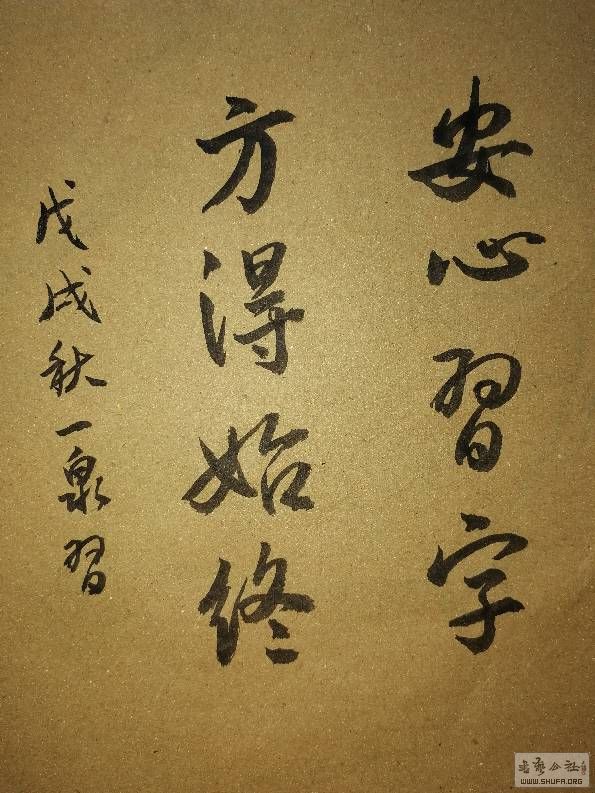 安心習字
方得始终
戊戌秋一泉習
书艺公社
WWW.SHUFA.ORG